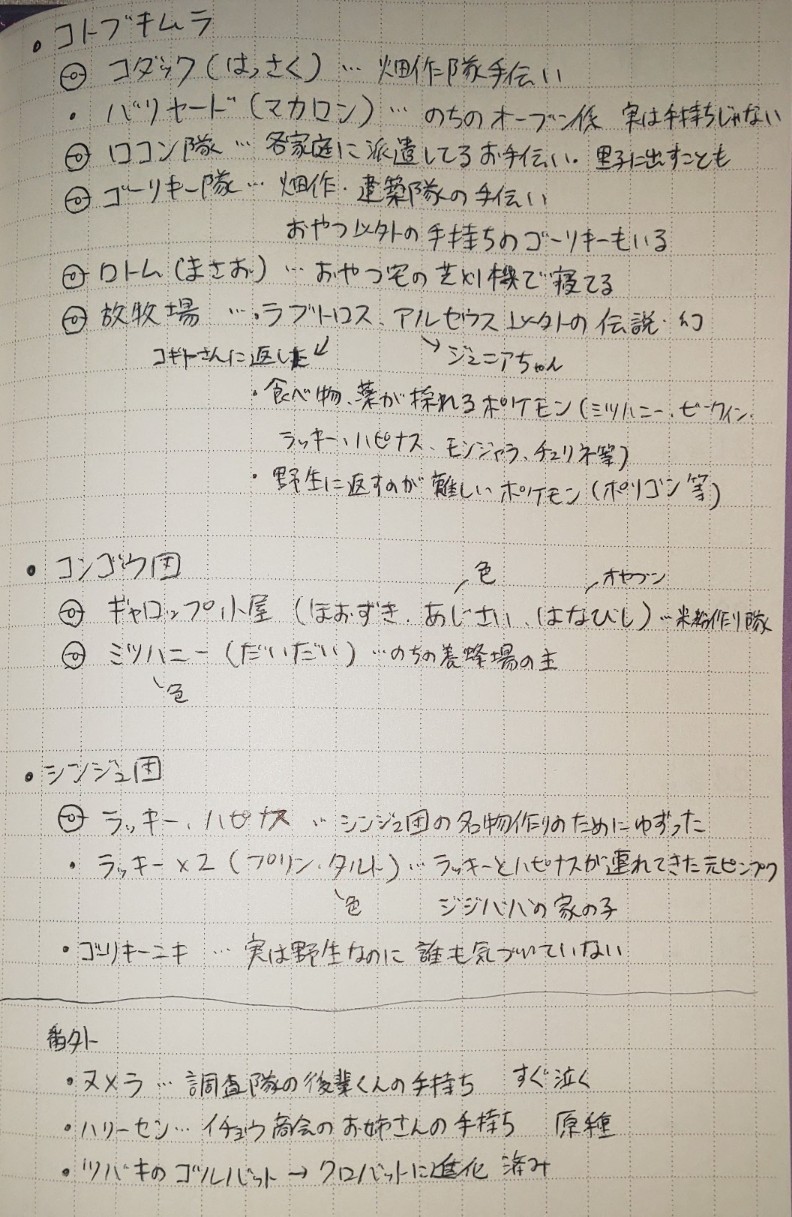 ・コトブキムラ
コダック(はっさく)… 畑作隊手伝い
・バリヤード(マカロン)… のちのオーブン係 実は手持ちじゃない
ロコン隊 … 各家庭に派遣してるお手伝い。里子に出すことも
ゴーリキー隊 … 畑作・建築隊の手伝い
おやつ以外の手持ちのゴーリキーもいる
ロトム(まさお)… おやつ宅の芝刈機で寝てる
放牧場 …・ラブトロス、アルセウス以外の伝説・幻
コギトさんに返した ジュニアちゃん
・食べ物、薬が採れるポケモン(ミツハニー、ビークイン、
ラッキー、ハピナス、モンジャラ、チュリネ等)
・野生に返すのが難しいポケモン(ポリゴン等)
・コンゴウ団
色 オヤブン
ギャロップ小屋(ほおずき、あじさい、はなびし)…米粉作り隊
ミツハニー(だいだい)…のちの養蜂場の主
色
・シンジュ団
ラッキー、ハピナス … シンジュ団の名物作りのためにゆずった
・ラッキー×2(プリン、タルト)… ラッキーとハピナスが連れてきた元ピンプク
色 ジジババの家の子
・ゴーリキーニキ … 実は野生なのに誰も気づいていない
番外
・ヌメラ … 調査隊の後輩くんの手持ち すぐ泣く
・ハリーセン… イチョウ商会のお姉さんの手持ち 原種
・ツバキのゴルバット → クロバットに進化済み